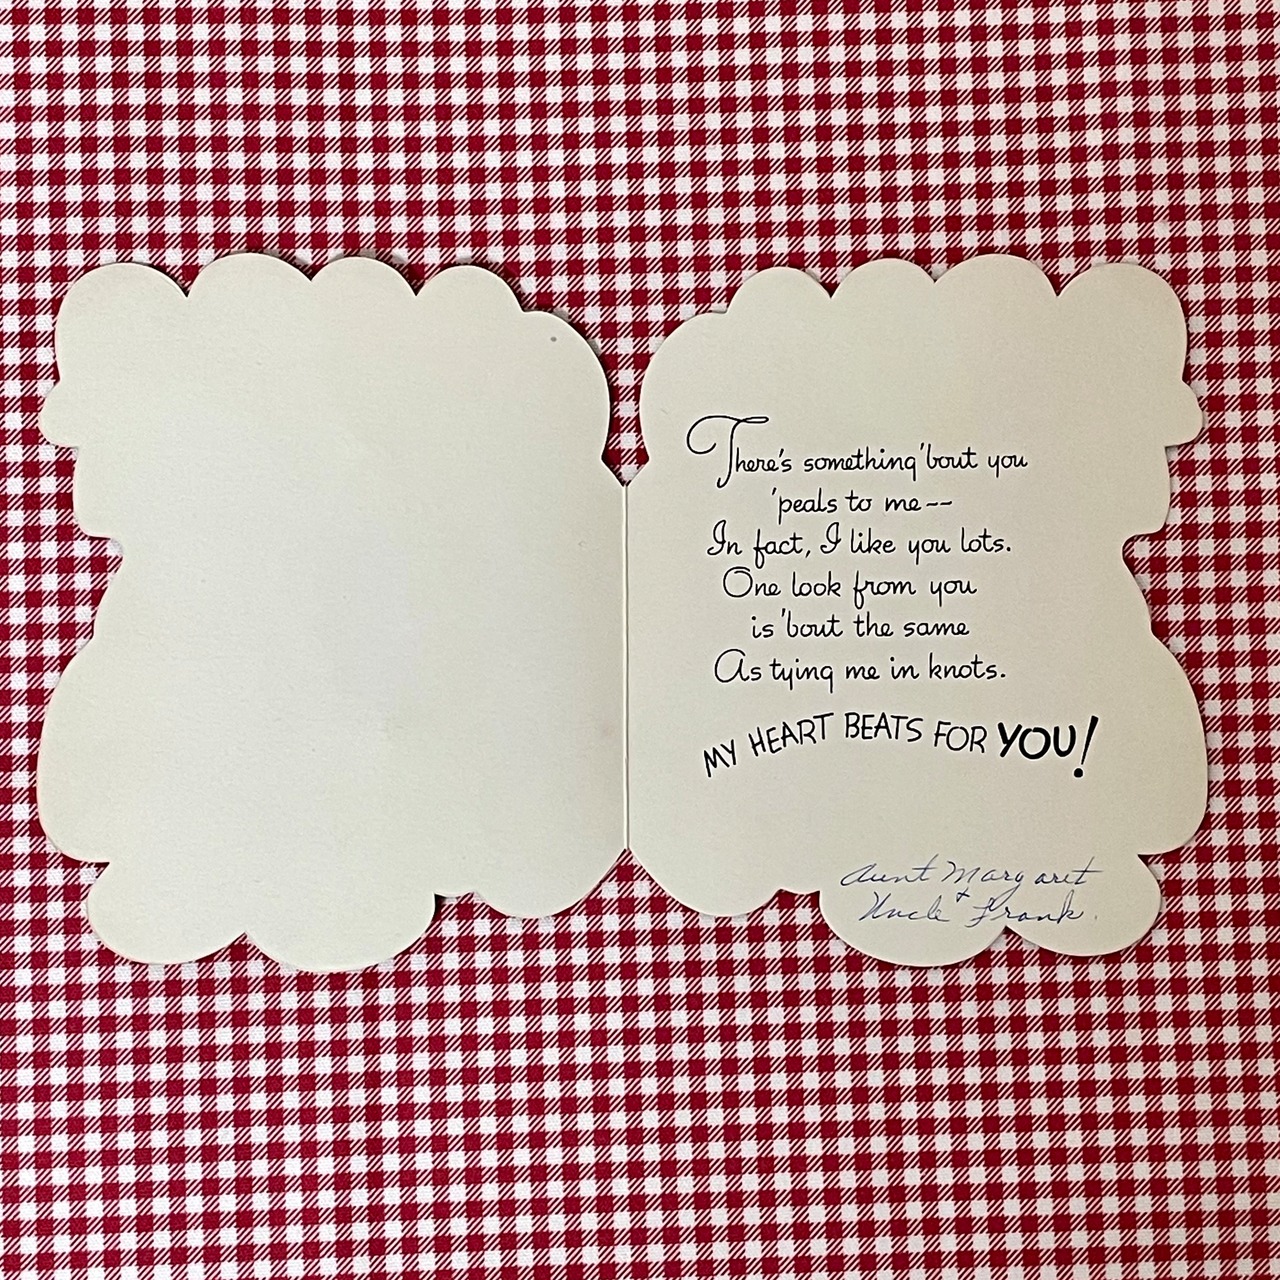 There's something 'bout you
'peals to me--
In fact, I like you lots.
One look from you
is 'bout the same
As tying me in knots.
MY HEART BEATS FOR YOU!
Aunt Margaret
+
Uncle Frank.